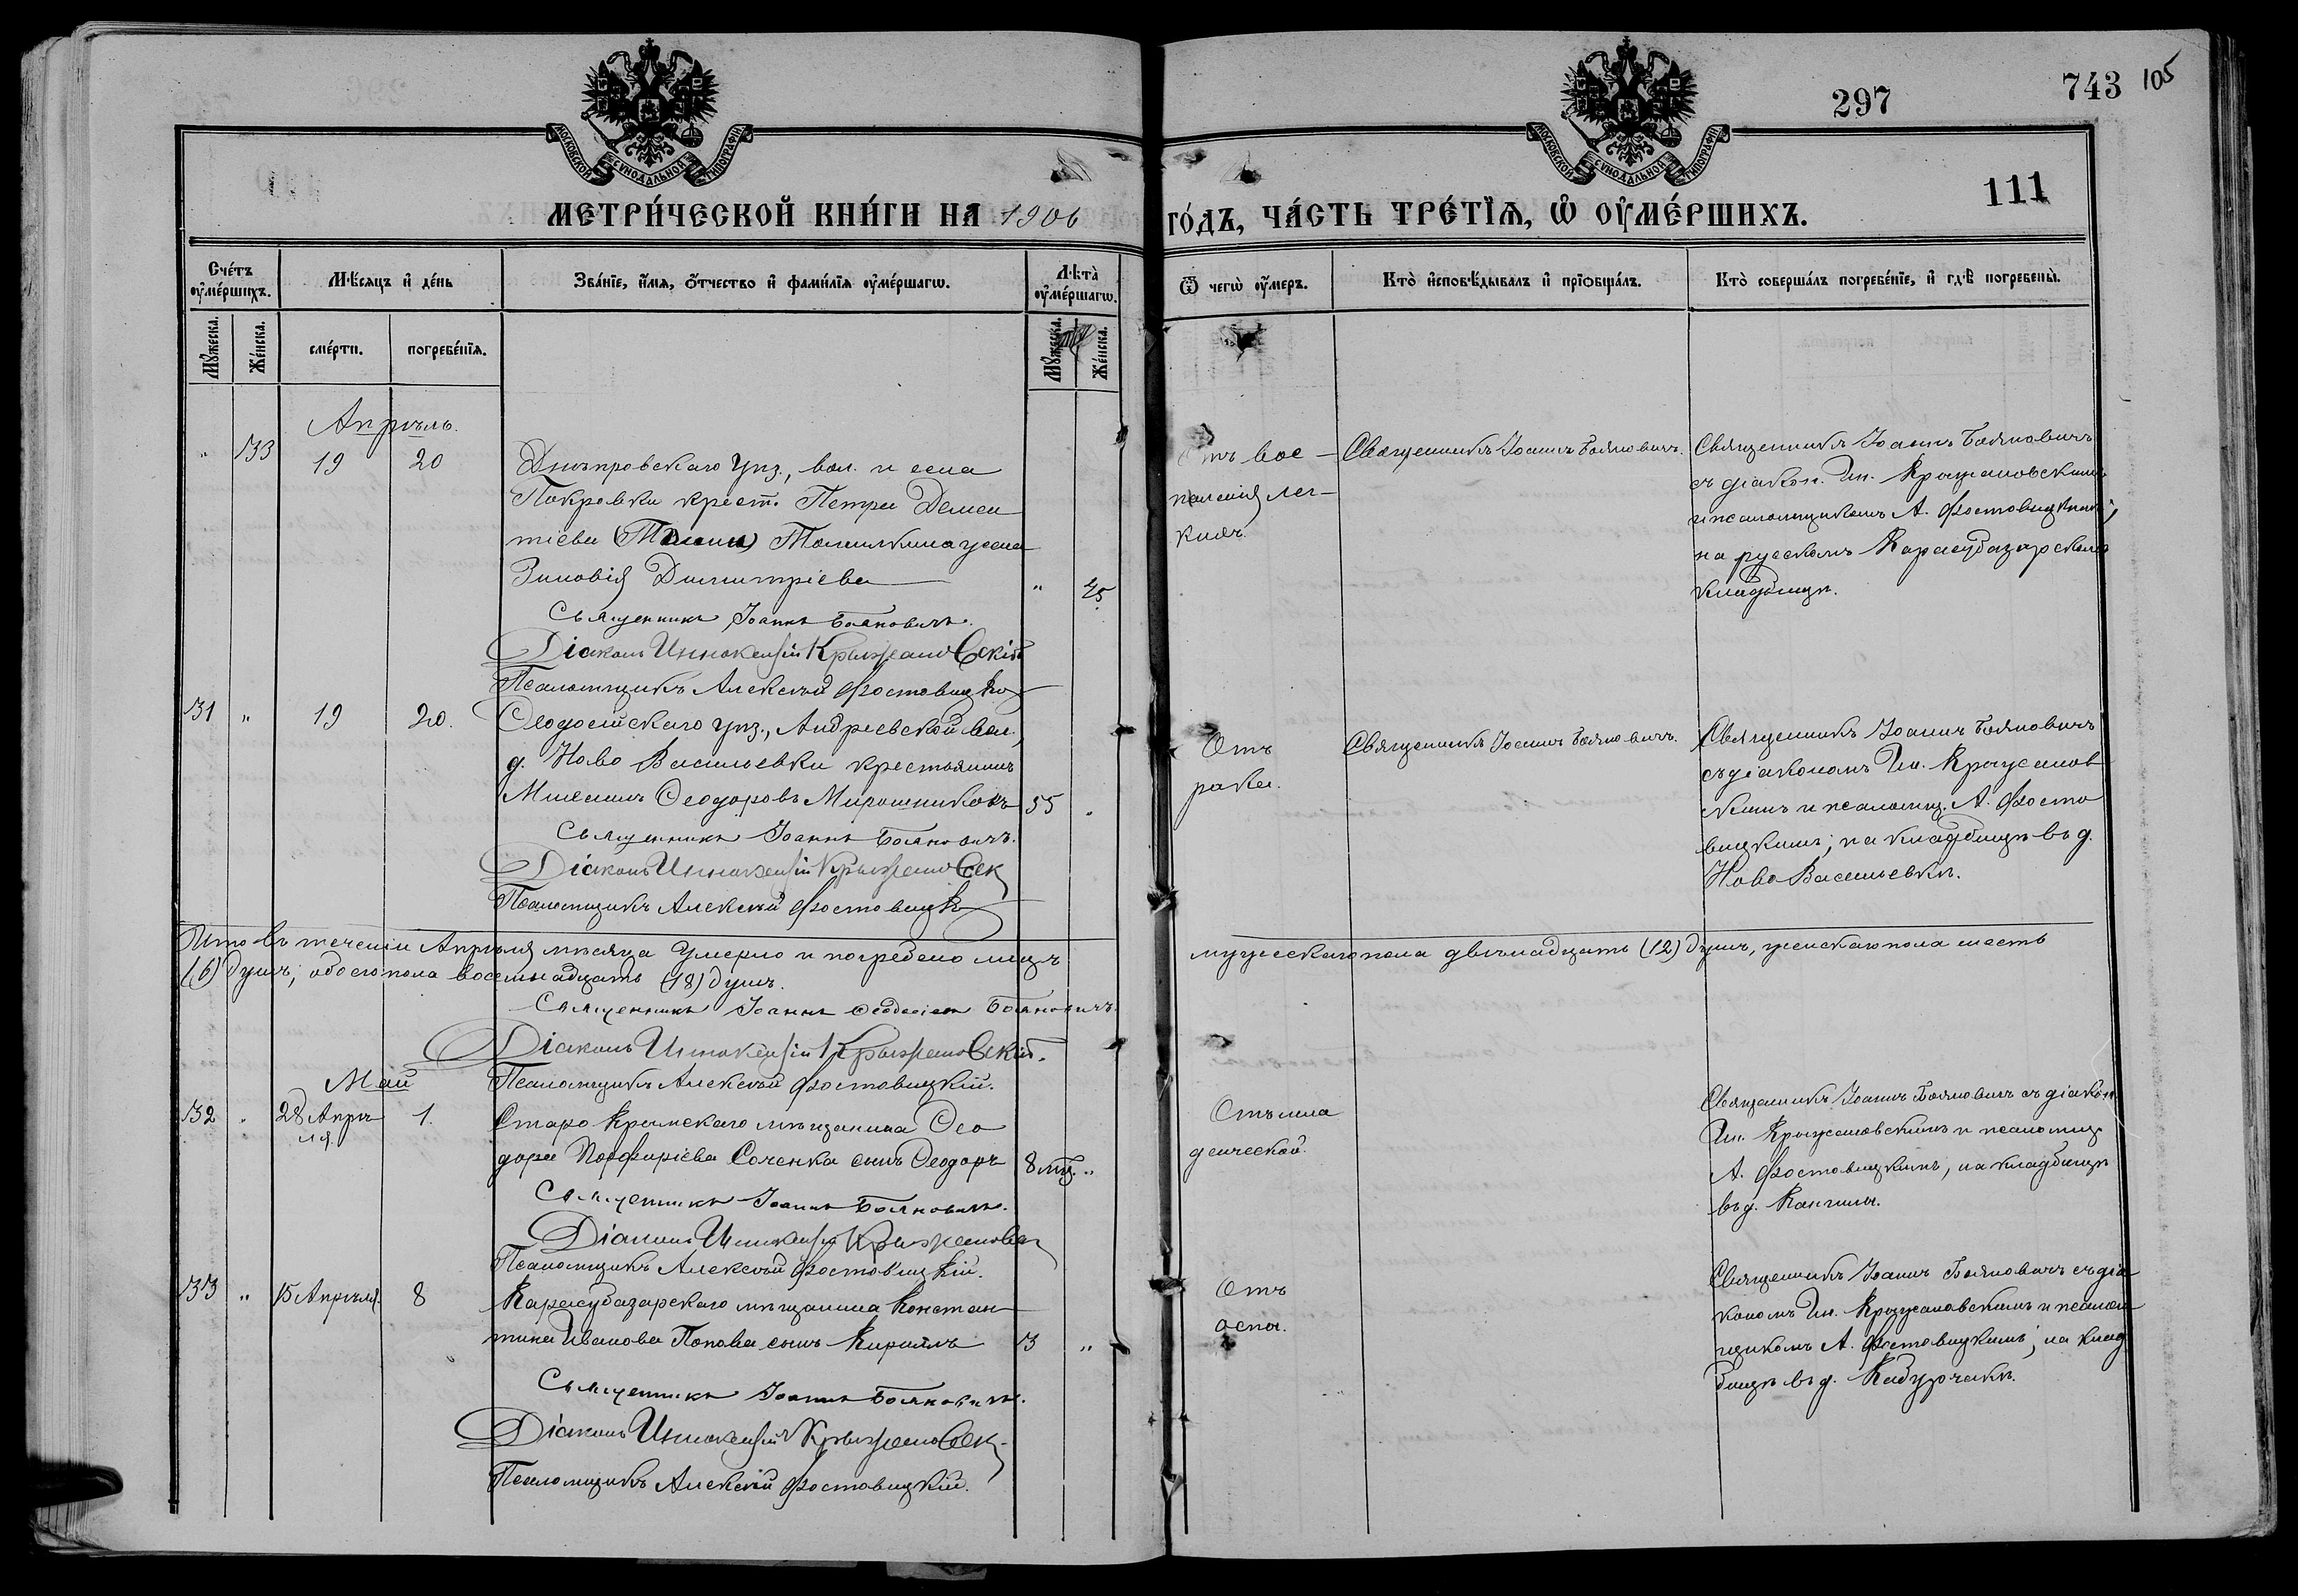 297
743
105
111
МОСКОВСКОЙ СѴНОДАЛЬНОЙ ТИПОГРАФІИ
МОСКОВСКОЙ СѴНОДАЛЬНОЙ ТИПОГРАФІИ
МЕТРИ́ЧЕСКОЙ КНИ́ГИ НА 1906
ГО́ДЪ, ЧА́СТЬ ТРЕ́ТЇѦ, Ѡ҆ ОУ҆МЕ́РШИХЪ.
Сче́тъ оу҆ме́ршихъ.
Мѣ́сяцъ и҆ де́нь
Зва́нїе, и҆́мѧ, ѻ҆́тчество и҆ фами́лїѧ оу҆ме́ршагѡ.
Лѣта̀ оу҆ме́ршагѡ.
Ѿ чегѡ̀ оу҆́меръ.
Кто̀ и҆сповѣ́дывалъ и҆ прїѡбща́лъ.
Кто̀ соверша́лъ погребе́нїе, и҆ гдѣ̀ погребены̀.
Мꙋ́жеска.
Же́нска.
сме́рти.
погребе́нїѧ.
Мꙋ́жеска.
Же́нска.
Апрѣль.
" 33 19 20
Днѣпровскаго уѣз., вол. и села
Покровки крест. Петра Демен
тіева Томилкина жена
Зиновія Димитріева " 45
Священникъ Іоаннъ Бояновичъ.
Діаконъ Иннокентій Крыжановскій
Псаломщикъ Алексѣй Фостовицкій
Отъ вос-
паленія лег-
кихъ.
Священникъ Іоаннъ Бояновичъ.
Священникъ Іоаннъ Бояновичъ
съ діакон. Ин. Крыжановскимъ
и псаломщикомъ А. Фостовицкимъ;
на русскомъ Карасубазарскомъ
кладбищѣ.
31 " 19 20.
Ѳеодосійскаго уѣз., Андреевской вол.,
д. Ново Васильевки крестьянинъ
Михаилъ Ѳеодоровъ Мирошниковъ 55 "
Священникъ Іоаннъ Бояновичъ.
Діаконъ Иннокентій Крыжановск
Псаломщикъ Алексѣй Фостовицкій
Отъ
рака.
Священникъ Іоаннъ Бояновичъ.
Священникъ Іоаннъ Бояновичъ
съ діакономъ Ин. Крыжанов
скимъ и псаломщ. А. Фосто
вицкимъ; на кладбищѣ въ д.
Ново Васильевкѣ.
Итого въ теченіи Апрѣля мѣсяца умерло и погребено лицъ мужескаго пола двѣнадцать (12) душъ, женскаго пола шесть
(6) душъ; обоего пола восемнадцать (18) душъ.
Священникъ Іоаннъ Бояновичъ.
Діаконъ Иннокентій Крыжановскій.
Псаломщикъ Алексѣй Фостовицкій.
Май
32 " 28 Апрѣ
ля 1.
Старо Крымскаго мѣщанина Ѳео
дора Порфиріева Соченка сынъ Ѳеодоръ 8 мц. "
Священникъ Іоаннъ Бояновичъ.
Діаконъ Иннокентій Крыжановск
Псаломщикъ Алексѣй Фостовицкій.
Отъ мла
денческой.
Священникъ Іоаннъ Бояновичъ съ діакон.
Ин. Крыжановскимъ и псаломщ.
А. Фостовицкимъ, на кладбищѣ
въ д.
33 " 15 Апрѣля 8
Карасубазарскаго мѣщанина Констан
тина Иванова Попова сынъ Кириллъ 3 "
Священникъ Іоаннъ Бояновичъ.
Діаконъ Иннокентій Крыжановск
Псаломщикъ Алексѣй Фостовицкій.
Отъ
оспы.
Священникъ Іоаннъ Бояновичъ съ діа
кономъ Ин. Крыжановскимъ и псалом
щикомъ А. Фостовицкимъ; на клад
бищѣ въ д. Кабурчакъ.